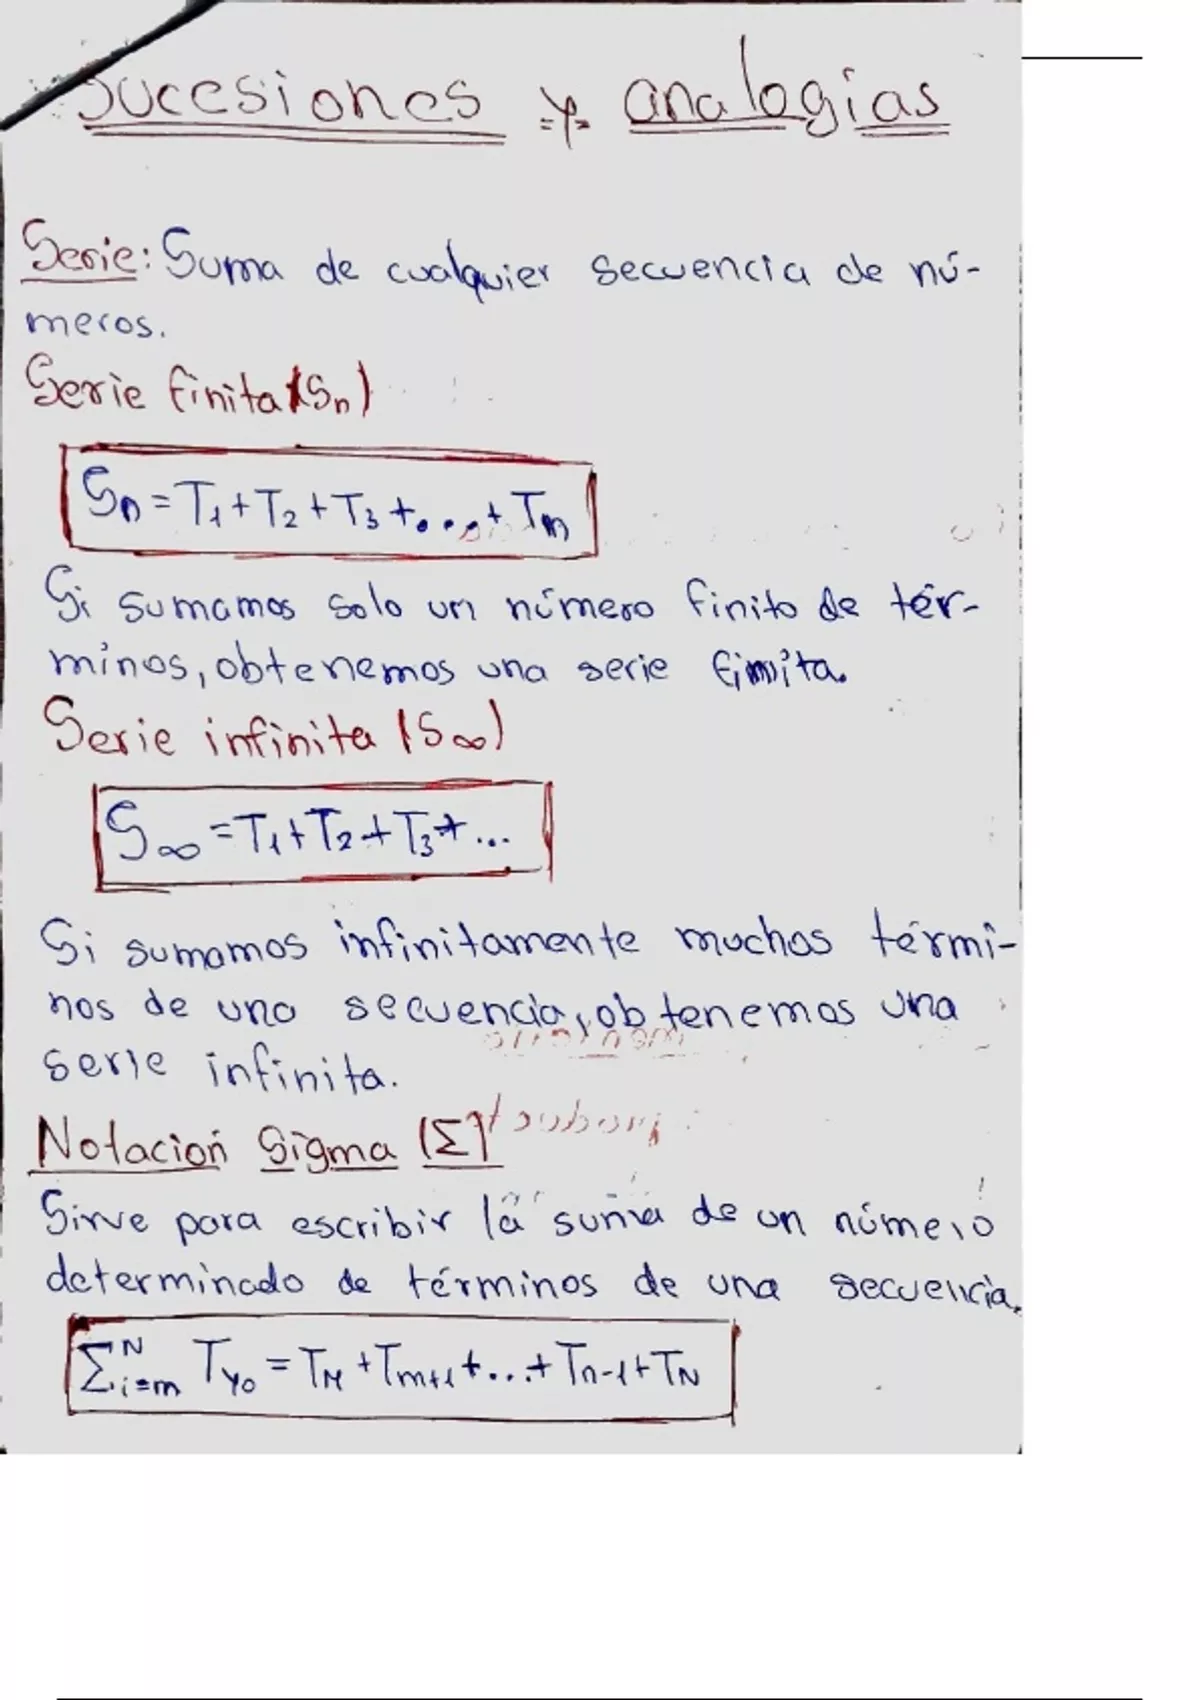 Sucesiones y analogías
Serie: Suma de cualquier secuencia de nú-
meros.
Serie finita (Sn)
Sn = T1 + T2 + T3 + ... + Tn
Si sumamos solo un número finito de tér-
minos, obtenemos una serie finita.
Serie infinita (S∞)
S∞ = T1 + T2 + T3 + ...
Si sumamos infinitamente muchos térmi-
nos de una secuencia, obtenemos una
serie infinita.
Notación Sigma (Σ)
Sirve para escribir la suma de un número
determinado de términos de una secuencia.
Σ^N i=m T = TM + Tm+1 + ... + Tn-1 + TN